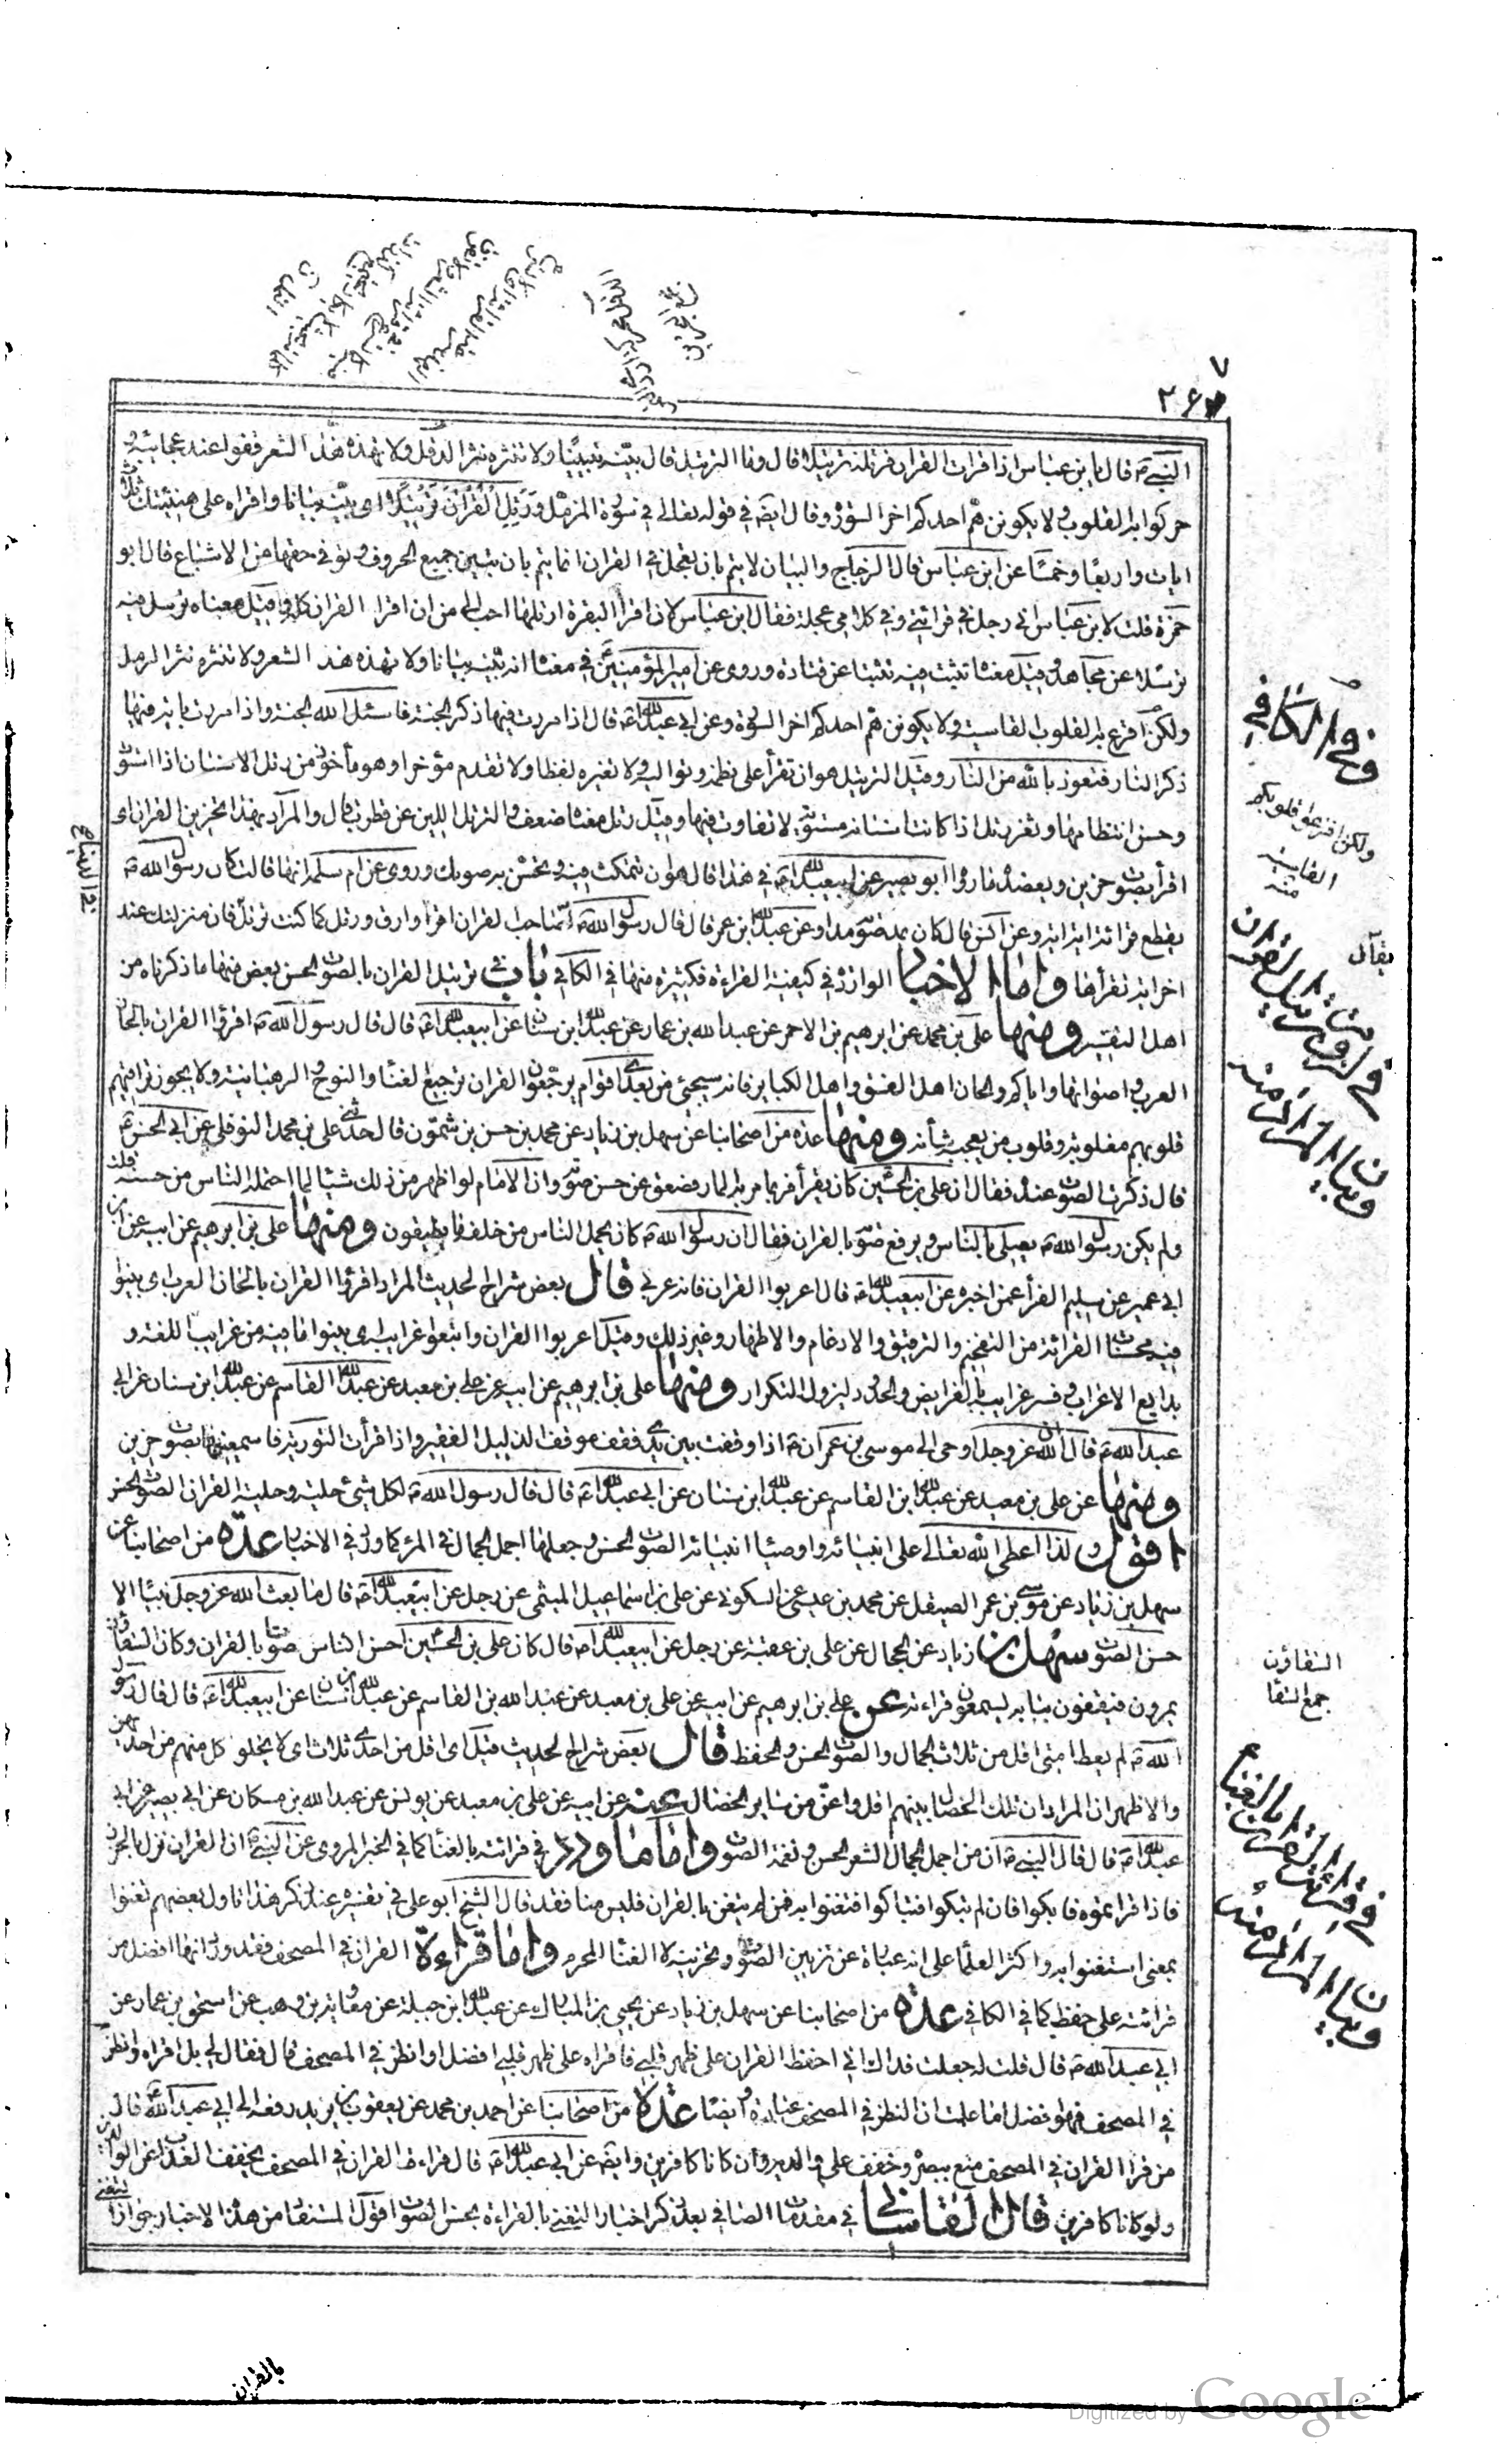 ٢۶٧
النبی ص قال یا بن عباس اذا قرات القران فرتله ترتیلا قال وما الترتیل قال بیّنه تبیینا ولا تنثره نثر الدقل ولا تهذه هذ الشعر قفوا عند عجائبه و
حرکوا به القلوب ولا یکونن هم احدکم اخر السورة وقال ایضه فی قوله تعالی فی سورة المزمل وَرَتِّلِ الْقُرْآنَ تَرْتِیلًا ای بیّنه بیانا واقراه علی هینتک ثلث
ایات واربعا وخمسا عن ابن عباس قال الزجاج والبیان لا یتم بان یعجل فی القران انما یتم بان یتبین جمیع الحروف وتوفی حقها من الاشباع قال ابو
حمزة قلت لابن عباس انی رجل فی قرائتی وفی کلامی عجلة فقال ابن عباس لان اقرا البقرة ارتلها احب الی من ان اقرا القران کله وقیل معناه ترسل فیه
ترسلا عن مجاهد وقیل معناه تثبت فیه تثبتا عن قتادة وروی عن امیر المؤمنین ع فی معناه انه بیّنه بیانا ولا تهذه هذ الشعر ولا تنثره نثر الرمل
ولکن اقرع به القلوب القاسیة ولا یکونن هم احدکم اخر السورة وعن ابی عبدالله ع قال اذا مررت فیها ذکر الجنة فاسئل الله الجنة واذا مررت بایة فیها
ذکر النار فتعوذ بالله من النار وقیل الترتیل هو ان تقرأ علی نظمه وتوالیه ولا تغیر لفظا ولا تقدم مؤخرا وهو مأخوذ من رتل الاسنان اذا استوت
وحسن انتظامها وثغر رتل اذا کانت اسنانه مستویة لا تفاوت فیها وقیل رتل معناه ضعف والرتل اللین عن قطرب قال والمراد بهذا تحزین القران ای
اقرأ بصوت حزین ویعضده ما رواه ابو بصیر عن ابیعبدالله ع فی هذا قال هو ان تتمکث فیه وتحسن به صوتک وروی عن ام سلمة انها قالت کان رسول الله ص
یقطع قرائته ایة ایة وعن انس قال کان یمد صوته مدا وعن عبدالله ابن عمر قال قال رسول الله ص یقال لصاحب القران اقرا وارق ورتل کما کنت ترتل فان منزلتک عند
اخر ایة تقرأها واما الاخبار الواردة فی کیفیة القراءة فکثیرة منها فی الکافی باب ترتیل القران بالصوت الحسن بعض منها ما ذکرناه من
اهل التفسیر ومنها علی بن محمد عن ابرهیم بن الاحمر عن عبدالله بن حماد عن عبدالله ابن سنان عن ابیعبدالله ع قال قال رسول الله ص اقرؤا القران بالحان
العرب واصواتها وایاکم ولحان اهل الفسق واهل الکبایر فانه سیجیئ من بعدی اقوام یرجعون القران ترجیع الغنا والنوح والرهبانیة ولا یجوز تراقیهم
قلوبهم مقلوبة وقلوب من یعجبه شأنهم ومنها عدة من اصحابنا عن سهل بن زیاد عن محمد بن حسن بن شمون قال حدثنی علی بن محمد النوفلی عن ابی الحسن ع
قال ذکرت الصوت عنده فقال ان علی بن الحسین کان یقرأ فربما مر به المار فصعق عن حسن صوته وان الامام لو اظهر من ذلک شیئا لما احتمله الناس من حسنه قلت
ولم یکن رسول الله ص یصلی بالناس ویرفع صوته بالقران فقال ان رسول الله ص کان یحمل الناس من خلفه ما یطیقون ومنها علی بن ابرهیم عن ابیه عن ابن
ابی عمیر عن سلیم الفرأ عمن اخبره عن ابیعبدالله ع قال اعربوا القران فانه عربی قال بعض شراح الحدیث المراد اقرؤا القران بالحان العرب ای بینوا
فیه محسنات القرائة من التفخیم والترقیق والادغام والاظهار وغیر ذلک وقیل اعربوا القران وابتغوا غرایبه ای بینوا ما فیه من غرایب اللغة و
بدایع الاعراب وفسر غرایبه بالفرایض والحدود لیزول التکرار ومنها علی بن ابرهیم عن ابیه عن علی بن معبد عن عبدالله القاسم عن عبدالله ابن سنان عن ابی
عبدالله ع قال ان الله عز وجل اوحی الی موسی بن عمران ع اذا وقفت بین یدی فقف موقف الذلیل الفقیر واذا قرأت التوریة فاسمعنیها بصوت حزین
ومنها عن علی بن معبد عن عبدالله ابن القاسم عن عبدالله ابن سنان عن ابی عبدالله ع قال قال رسول الله ص لکل شیئ حلیة وحلیة القران الصوت الحسن
اقول ولذا اعطی الله تعالی علی انبیائه واوصیاء انبیائه الصوت الحسن وجعلها اجمل الجمال فی المرء کما ورد فی الاخبار عدة من اصحابنا عن
سهل بن زیاد عن موسی بن عمر الصیقل عن محمد بن عیسی عن السکونی عن علی بن اسماعیل المیثمی عن رجل عن ابیعبدالله ع قال ما بعث الله عز وجل نبیا الا
حسن الصوت سهل بن زیاد عن الحجال عن علی بن عقبة عن رجل عن ابیعبدالله ع قال کان علی بن الحسین احسن الناس صوتا بالقران وکان السقاؤن
یمرون فیقفون ببابه لیسمعون قراءته علی بن ابرهیم عن ابیه عن علی بن معبد عن عبدالله بن القاسم عن عبدالله ابن سنان عن ابیعبدالله ع قال قال رسول
الله ص لم یعط امتی اقل من ثلاث الجمال والصوت الحسن والحفظ قال بعض شراح الحدیث قیل ای اقل من احدی ثلاث ای لا یخلو کل منهم من احدیهن
والاظهر ان المراد ان تلک الخصال بینهم اقل واعز من سایر الخصال عنه عن ابیه عن علی بن معبد عن یونس عن عبدالله بن مسکان عن ابی بصیر عن ابی
عبدالله ع قال قال النبی ص ان من اجمل الجمال الشعر الحسن ونغمة الصوت واما ما ورد فی قرائته بالغناء کما فی الخبر المروی عن النبی ص ان القران نزل بالحزن
فاذا قراتموه فابکوا فان لم تبکوا فتباکوا وتغنوا به فمن لم یتغن بالقران فلیس منا فقد قال الشیخ ابو علی فی تفسیره عند ذکر هذا تاول بعضهم تغنوا
بمعنی استغنوا به واکثر العلماء علی انه عبارة عن تزیین الصوت وتحزینه لا الغناء المحرم واما قراءة القران فی المصحف فقد ورد انها افضل من
قرائته علی حفظ کما فی الکافی عدة من اصحابنا عن سهل بن زیاد عن یحیی بن المبارک عن عبدالله ابن جبلة عن معاویة بن وهب عن اسحق بن عمار عن
ابی عبدالله ع قال قلت له جعلت فداک انی احفظ القران علی ظهر قلبی فاقراه علی ظهر قلبی افضل او انظر فی المصحف قال فقال لی بل اقراه وانظر
فی المصحف فهو افضل اما علمت ان النظر فی المصحف عبادة وایضا عدة من اصحابنا عن احمد بن محمد عن یعقوب بن یزید رفعه الی ابی عبدالله ع قال
من قرا القران فی المصحف متع ببصره وخفف علی والدیه وان کانا کافرین وایضه عن ابی عبدالله ع قال قراءة القران فی المصحف یخفف العذاب عن الوالدین
ولو کانا کافرین قال القاسانی فی مقدمات الصافی بعد ذکر اخبار التغنی بالقراءة بحسن الصوت اقول المستفاد من هذا الاخبار جواز التغنی
وفی الکافی
ولکن اقرعوا قلوبکم
القاسیة
منه
یقال
فی ترتیل القران
وبیان المراد منه
السقاؤن
جمع السقا
فی قرائة القران بالغناء
وبیان المراد منه
بالقران
Digitized by Google